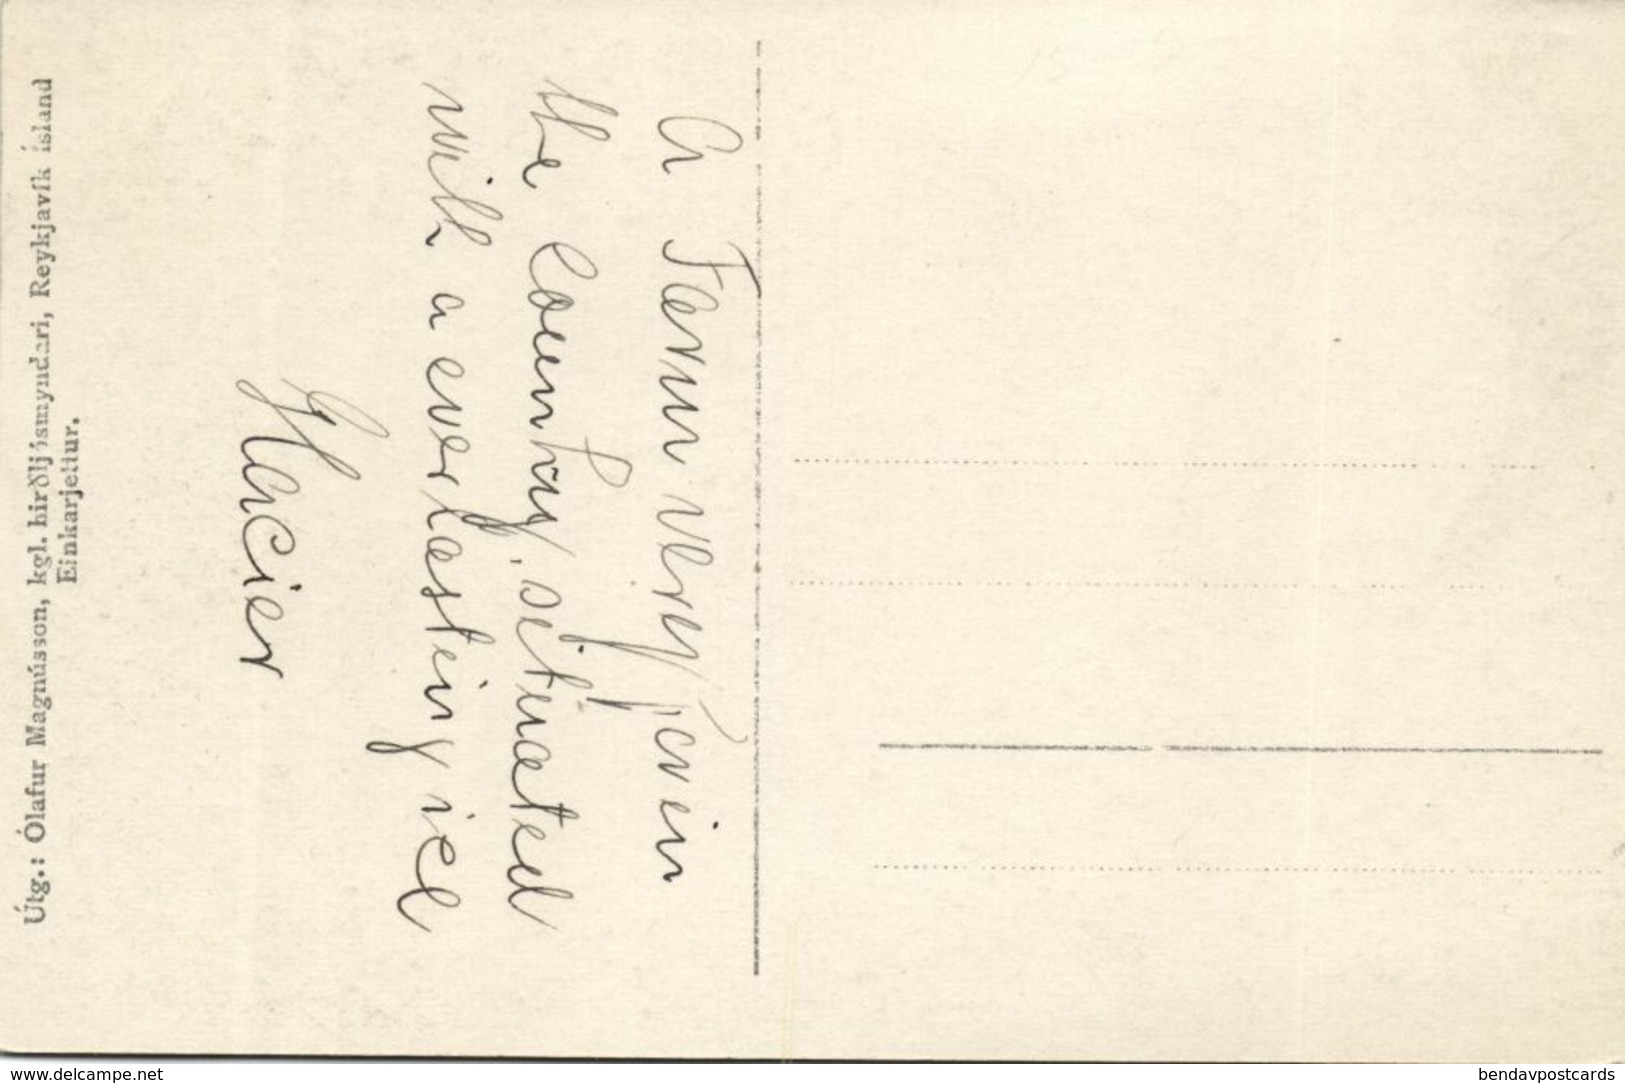 A Farm very far in
the Country, situated
with a everlasting ice
Glacier
Útg.: Ólafur Magnússon, kgl. hirðljósmyndari, Reykjavík Ísland
Einkarjettur.
www.delcampe.net
bendavpostcards